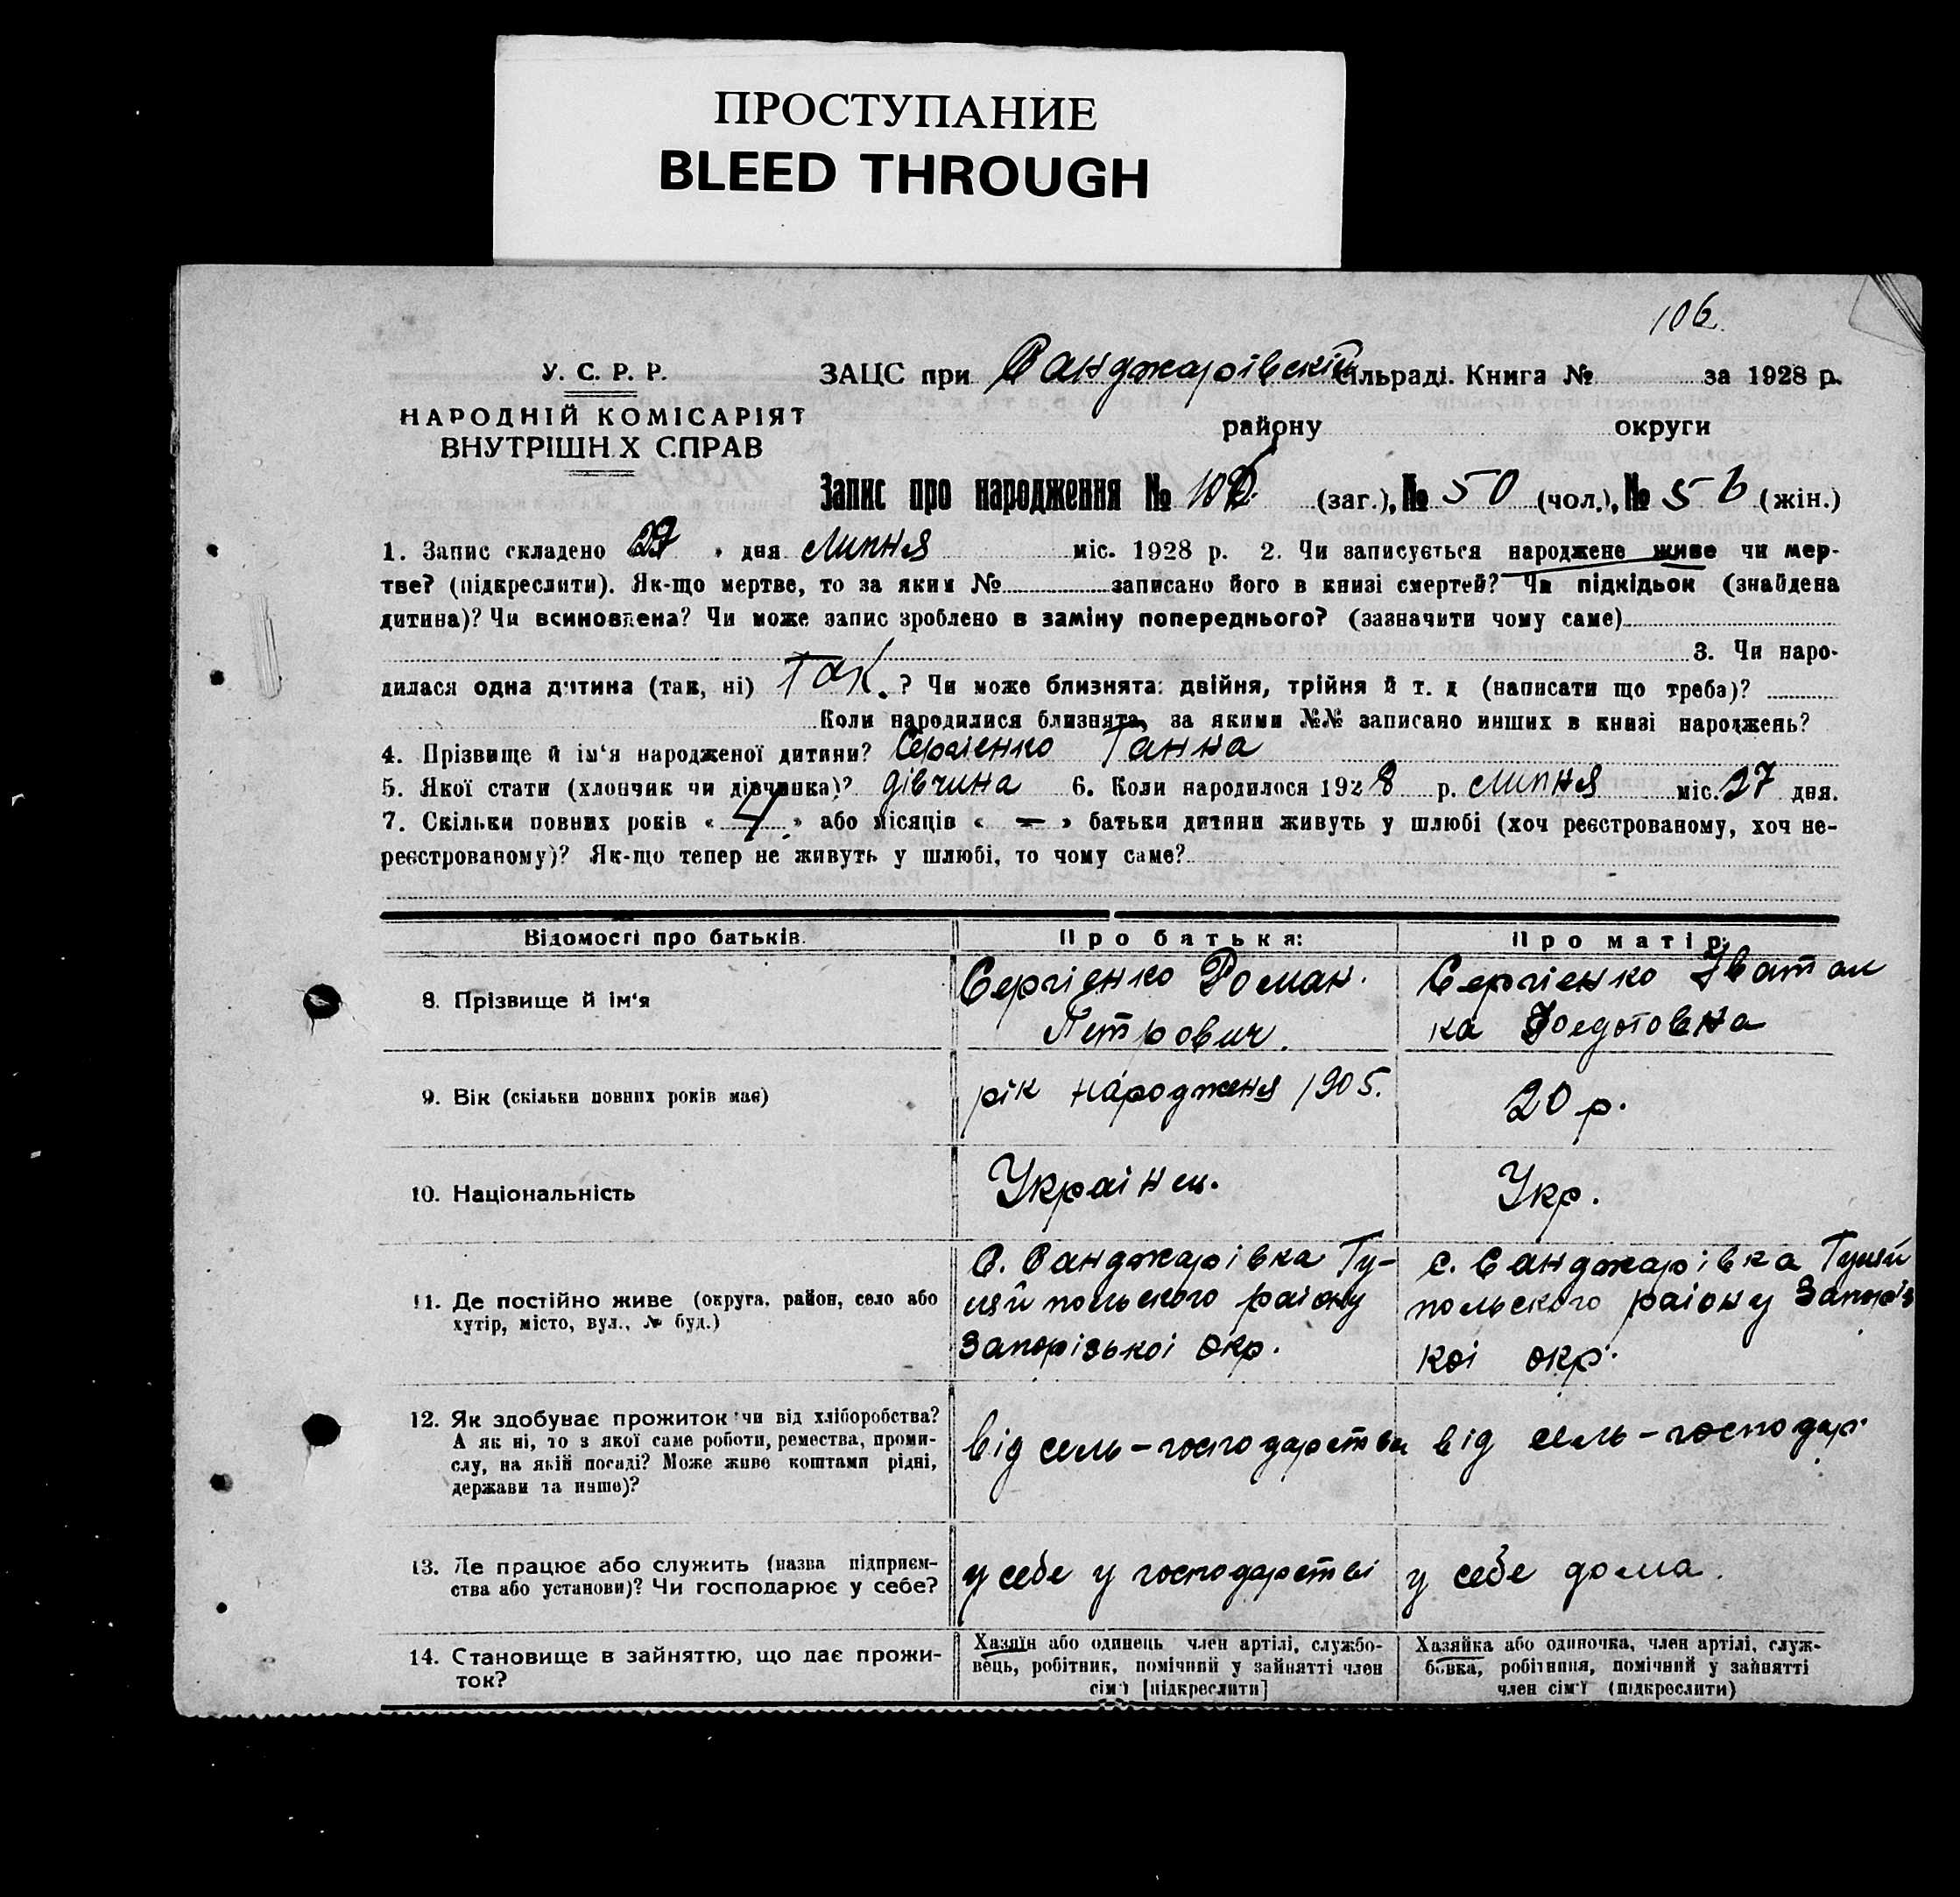 ПРОСТУПАНИЕ
BLEED THROUGH
106.
У. С. Р. Р.
НАРОДНІЙ КОМІСАРІЯТ
ВНУТРІШН Х СПРАВ
ЗАЦС при Санджарівскій сільраді. Книга № за 1928 р.
району округи
Запис про народження № 106 (заг.), № 50 (чол.), № 56 (жін.)
1. Запис складено 29 дня липня міс. 1928 р. 2. Чи записується народжене живе чи мер-
тве? (підкреслити). Як-що мертве, то за яким № записано його в книзі смертей? Чи підкідьок (знайдена
дитина)? Чи всиновлена? Чи може запис зроблено в заміну попереднього? (зазначити чому саме)
3. Чи наро-
дилася одна дитина (так, ні) Так. ? Чи може близнята: двійня, трійня й т. д (написати що треба)?
Коли народилися близнята, за якими №№ записано инших в книзі народжень?
4. Прізвище й ім'я народженої дитини? Сергіенко Ганна
5. Якої стати (хлопчик чи дівчинка)? дівчина 6. Коли народилося 1928 р. липня міс. 27 дня.
7. Скільки повних років « 4 » або місяців « — » батьки дитини живуть у шлюбі (хоч реєстрованому, хоч не-
реєстрованому)? Як-що тепер не живуть у шлюбі, то чому саме?
Відомості про батьків. Про батька: Про матір:
8. Прізвище й ім'я
Сергіенко Роман.
Петрович.
Сергіенко
ка Федотовна
9. Вік (скільки повних років має)
рік народженя 1905.
20 р.
10. Національність
Украінец.
Укр.
11. Де постійно живе (округа, район, село або
хутір, місто, вул., № буд.)
С. Санджарівка Гу-
ляйпольского раіону
Запорізькоі Окр.
с. Санджарівка Гуляй
польского раіону Запоріз
коі окр.
12. Як здобуває прожиток чи від хліборобства?
А як ні, то з якої саме роботи, ремества, проми-
слу, на якій посаді? Може живе коштами рідні,
держави та инше)?
від сель-господарства
від сель-господар
13. Де працює або служить (назва підприєм-
ства або установи)? Чи господарює у себе?
у себе у господарстві
у себе дома.
14. Становище в зайняттю, що дає прожи-
ток?
Хазяїн або одинець член артілі, службо-
вець, робітник, помічний у зайнятті член
сім'ї [підкреслити]
Хазяйка або одиночка, член артілі, служ-
бовка, робітниця, помічний у зайнятті
член сім'ї (підкреслити)